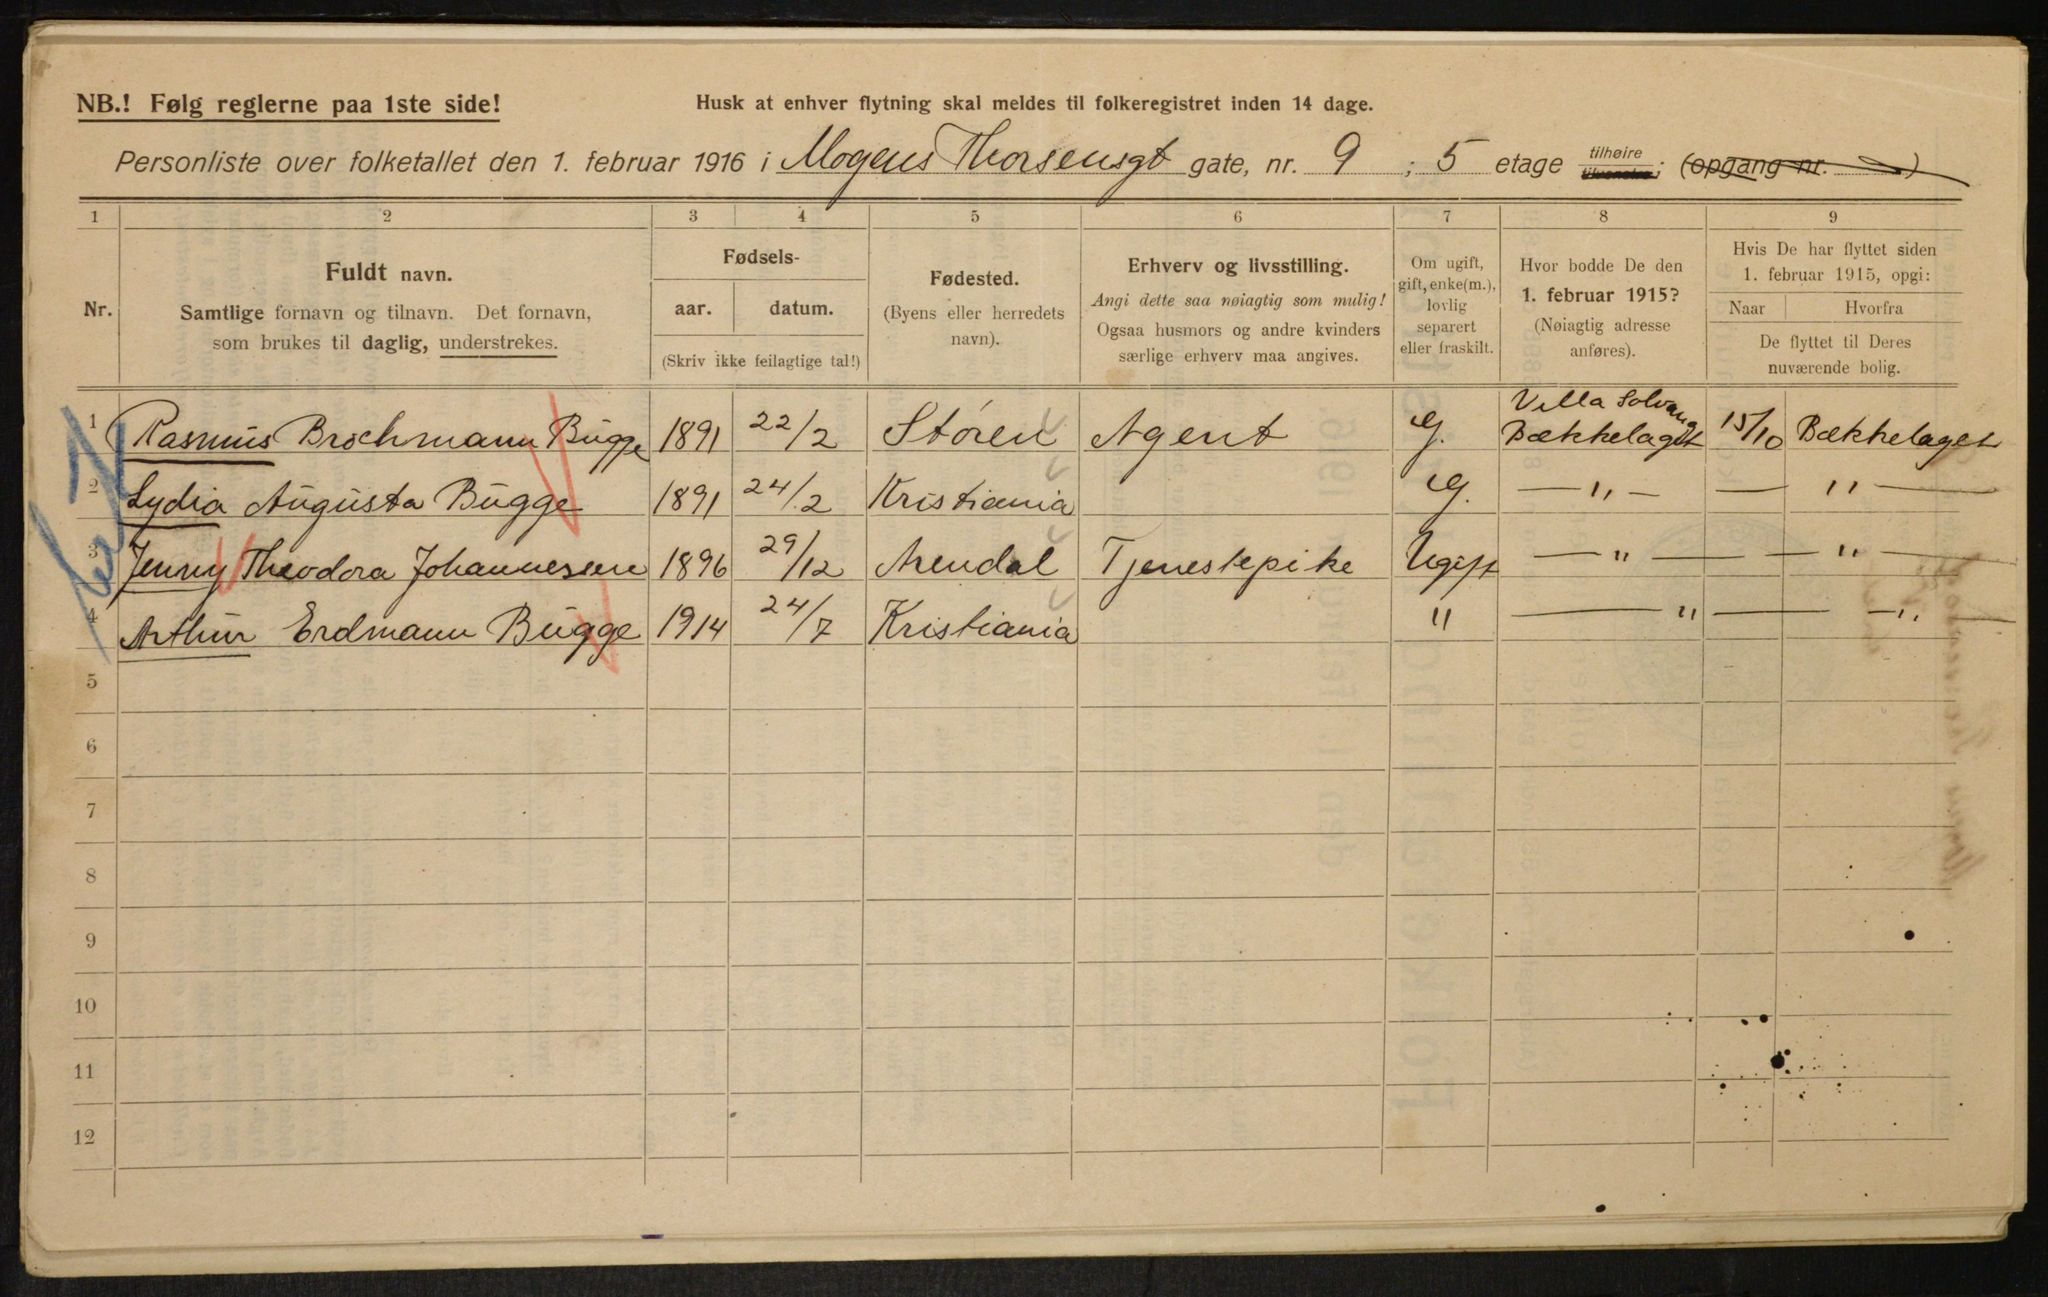 NB.! Følg reglerne paa 1ste side!
Husk at enhver flytning skal meldes til folkeregistret inden 14 dage.
Personliste over folketallet den 1. februar 1916 i Mogens Thorsensgt gate, nr. 9 ; 5 etage tilhøire tilvenstre; (opgang nr. )
1 2 3 4 5 6 7 8 9
Nr.
Fuldt navn.
Samtlige fornavn og tilnavn. Det fornavn,
som brukes til daglig, understrekes.
Fødsels-
aar. datum.
(Skriv ikke feilagtige tal!)
Fødested.
(Byens eller herredets
navn).
Erhverv og livsstilling.
Angi dette saa nøiagtig som mulig!
Ogsaa husmors og andre kvinders
særlige erhverv maa angives.
Om ugift,
gift, enke(m.),
lovlig
separert
eller fraskilt.
Hvor bodde De den
1. februar 1915?
(Nøiagtig adresse
anføres).
Hvis De har flyttet siden
1. februar 1915, opgi:
Naar Hvorfra
De flyttet til Deres
nuværende bolig.
1 Rasmus Brochmann Bugge 1891 22/2 Støren Agent G. Villa Solvang Bækkelaget 15/10 Bækkelaget
2 Lydia Augusta Bugge 1891 24/2 Kristiania G. — " — — " —
3 Jenny Theodora Johannessen 1896 29/12 Arendal Tjenestepike Ugift — " — — " —
4 Arthur Erdmann Bugge 1914 24/7 Kristiania " — " — — " —
5
6
7
8
9
10
11
12